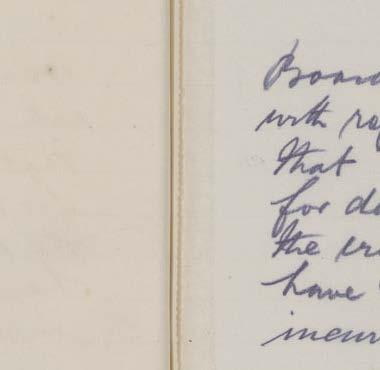 Board
with
that
for
the
have
incur